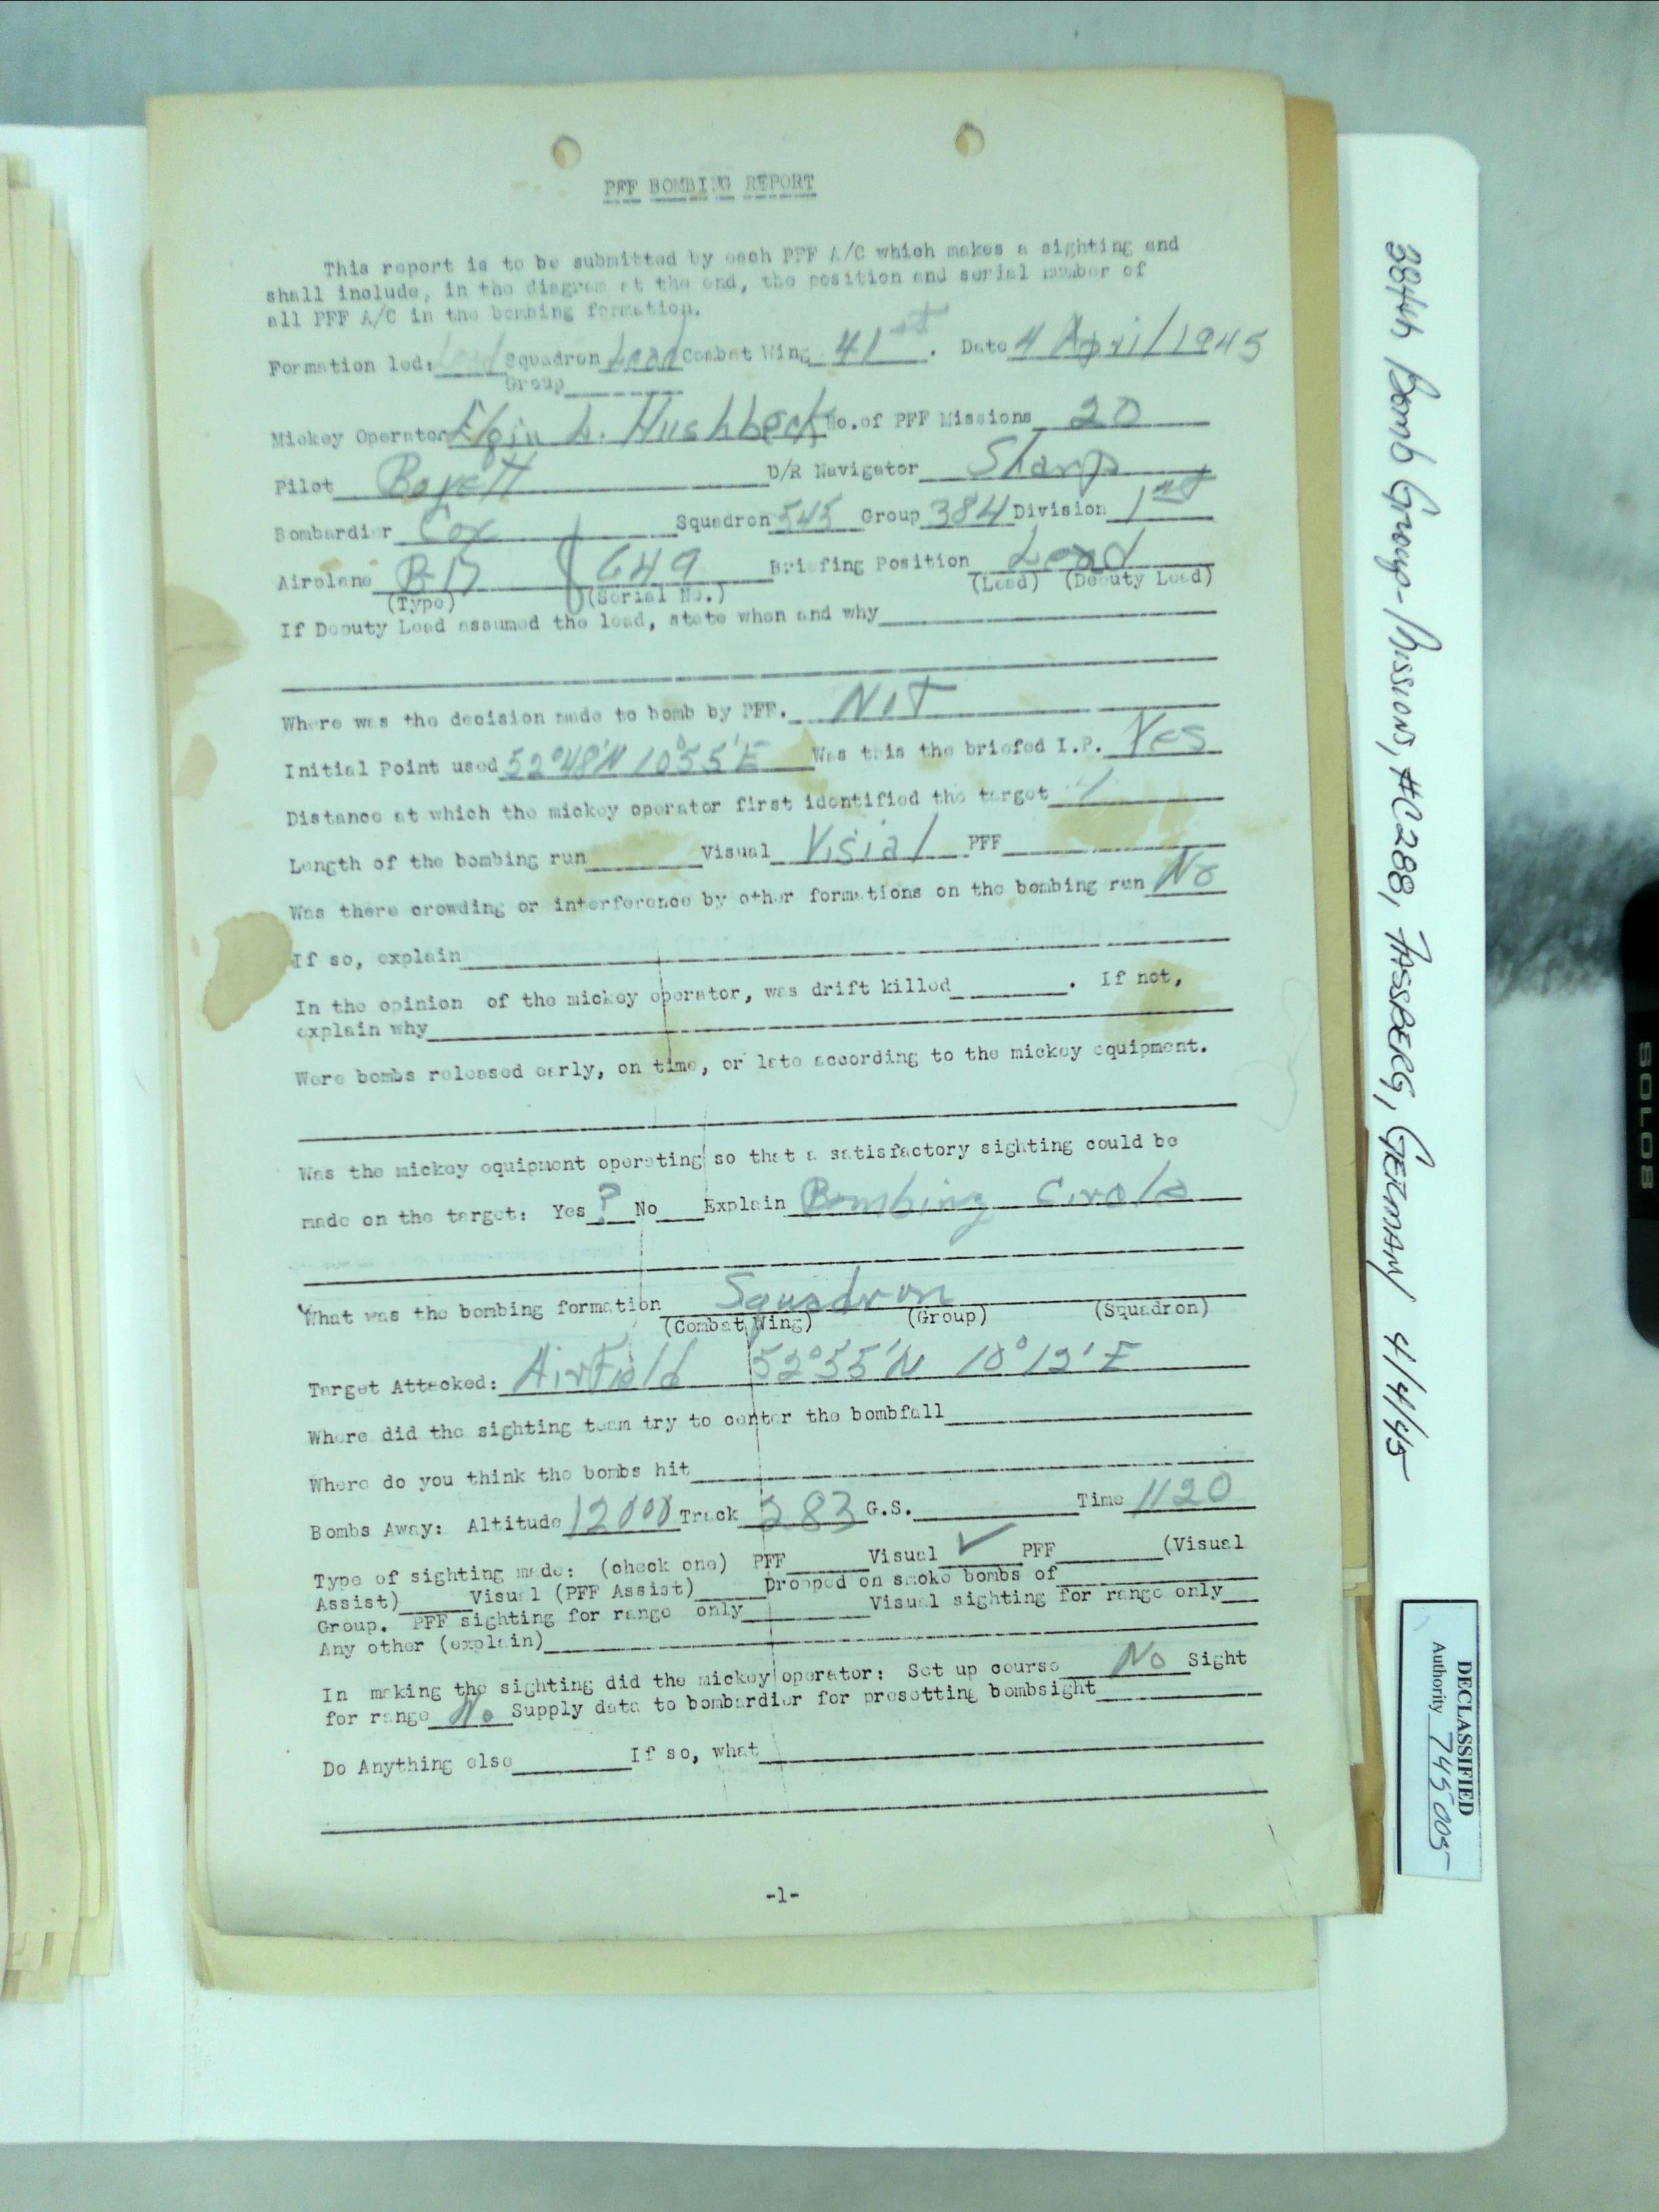 PFF BOMBING REPORT
This report is to be submitted by each PFF A/C which makes a sighting and
shall include, in the diagram at the end, the position and serial number of
all PFF A/C in the bombing formation.
Formation led: Lead Squadron Lead Combat Wing 41st. Date 4 April 1945
Group
Mickey Operator Elgin L. Hushbeck No. of PFF Missions 20
Pilot Boyett D/R Navigator Sharp
Bombardier Cox Squadron 545 Group 384 Division 1st
Airplane B-17 649 Briefing Position Lead
(Type) (Serial No.) (Lead) (Deputy Lead)
If Deputy Lead assumed the lead, state when and why
Where was the decision made to bomb by PFF. Not
Initial Point used 52°48'N 10°55'E Was this the briefed I.P. Yes
Distance at which the mickey operator first identified the target
Length of the bombing run Visual Visial PFF
Was there crowding or interference by other formations on the bombing run No
If so, explain
In the opinion of the mickey operator, was drift killed . If not,
explain why
Were bombs released early, on time, or late according to the mickey equipment.
Was the mickey equipment operating so that a satisfactory sighting could be
made on the target: Yes ? No Explain Bombing Circle
What was the bombing formation Squadron
(Combat Wing) (Group) (Squadron)
Target Attacked: AirField 52°55'N 10°12'E
Where did the sighting team try to center the bombfall
Where do you think the bombs hit
Bombs Away: Altitude 12000 Track 283 G.S. Time 1120
Type of sighting made: (check one) PFF Visual ✓ PFF (Visual
Assist) Visual (PFF Assist) Dropped on smoke bombs of
Group. PFF sighting for range only Visual sighting for range only
Any other (explain)
In making the sighting did the mickey operator: Set up course No Sight
for range No Supply data to bombardier for presetting bombsight
Do Anything else If so, what
-1-
384th Bomb Group-Mission, #C288, FASSBERG, GERMANY 4/4/45
DECLASSIFIED
Authority 745005